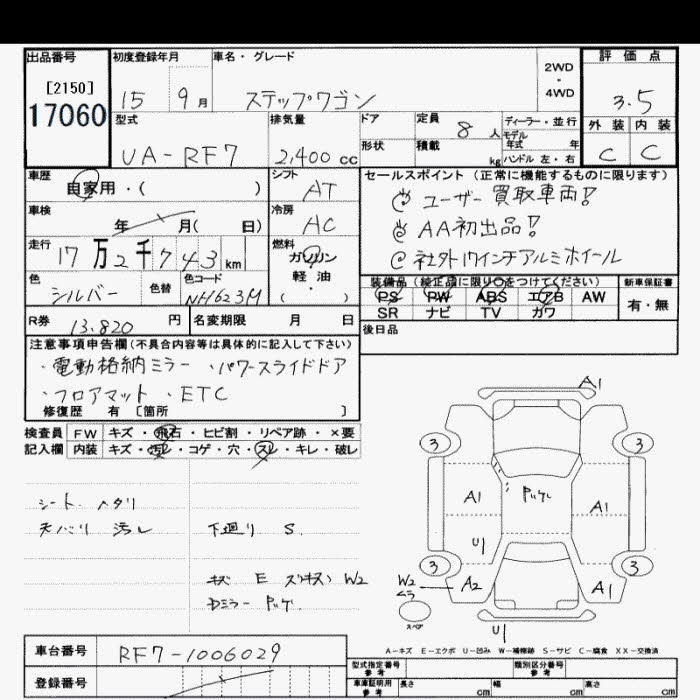 出品番号 初度登録年月 車名・グレード 評価点
[2150] 2WD
・
17060 15 9月 ステップワゴン 4WD 3.5
型式 排気量 ドア 定員 8人 ディーラー・並行 外装 内装
モデル
年式 年
UA-RF7 2,400cc 形状 積載 kg ハンドル 左・右 C C
車歴 シフト セールスポイント(正常に機能するものに限ります)
自家用・( ) AT ◎ユーザー買取車両!
車検 冷房 ◎AA初出品!
年 月( 日) AC ◎社外17インチアルミホイール
走行 燃料
17万2千743km ガソリン
軽・油
( ・ )
色 色替 色コード 装備品(純正品に限り○をつけてください) 新車保証書
シルバー NH623M PS PW ABS エアB AW 有・無
SR ナビ TV カワ
R券 13.820円 名変期限 月 日 後日品
注意事項申告欄(不具合内容等は具体的に記入して下さい)
・電動格納ミラー ・パワースライドドア
・フロアマット ・ETC
修復歴 有 [箇所 ]
検査員 FW キズ・飛石・ヒビ割・リペア跡・×要
記入欄 内装 キズ・汚れ・コゲ・穴・スレ・キレ・破レ
A1
3 3
シート ヘタリ A1 A1
天バリ 汚レ 下廻り S.
U1
3 3
キズ E W2 W2 ムラ A2 A1
スペア
U1
A-キズ E-エクボ U-凹み W-補修跡 S-サビ C-腐食 XX-交換済
車台番号 RF7-1006029
型式指定番号 参考 類別区分番号 参考
登録番号 車庫証明用 参考 長さ cm 幅 cm 高さ cm